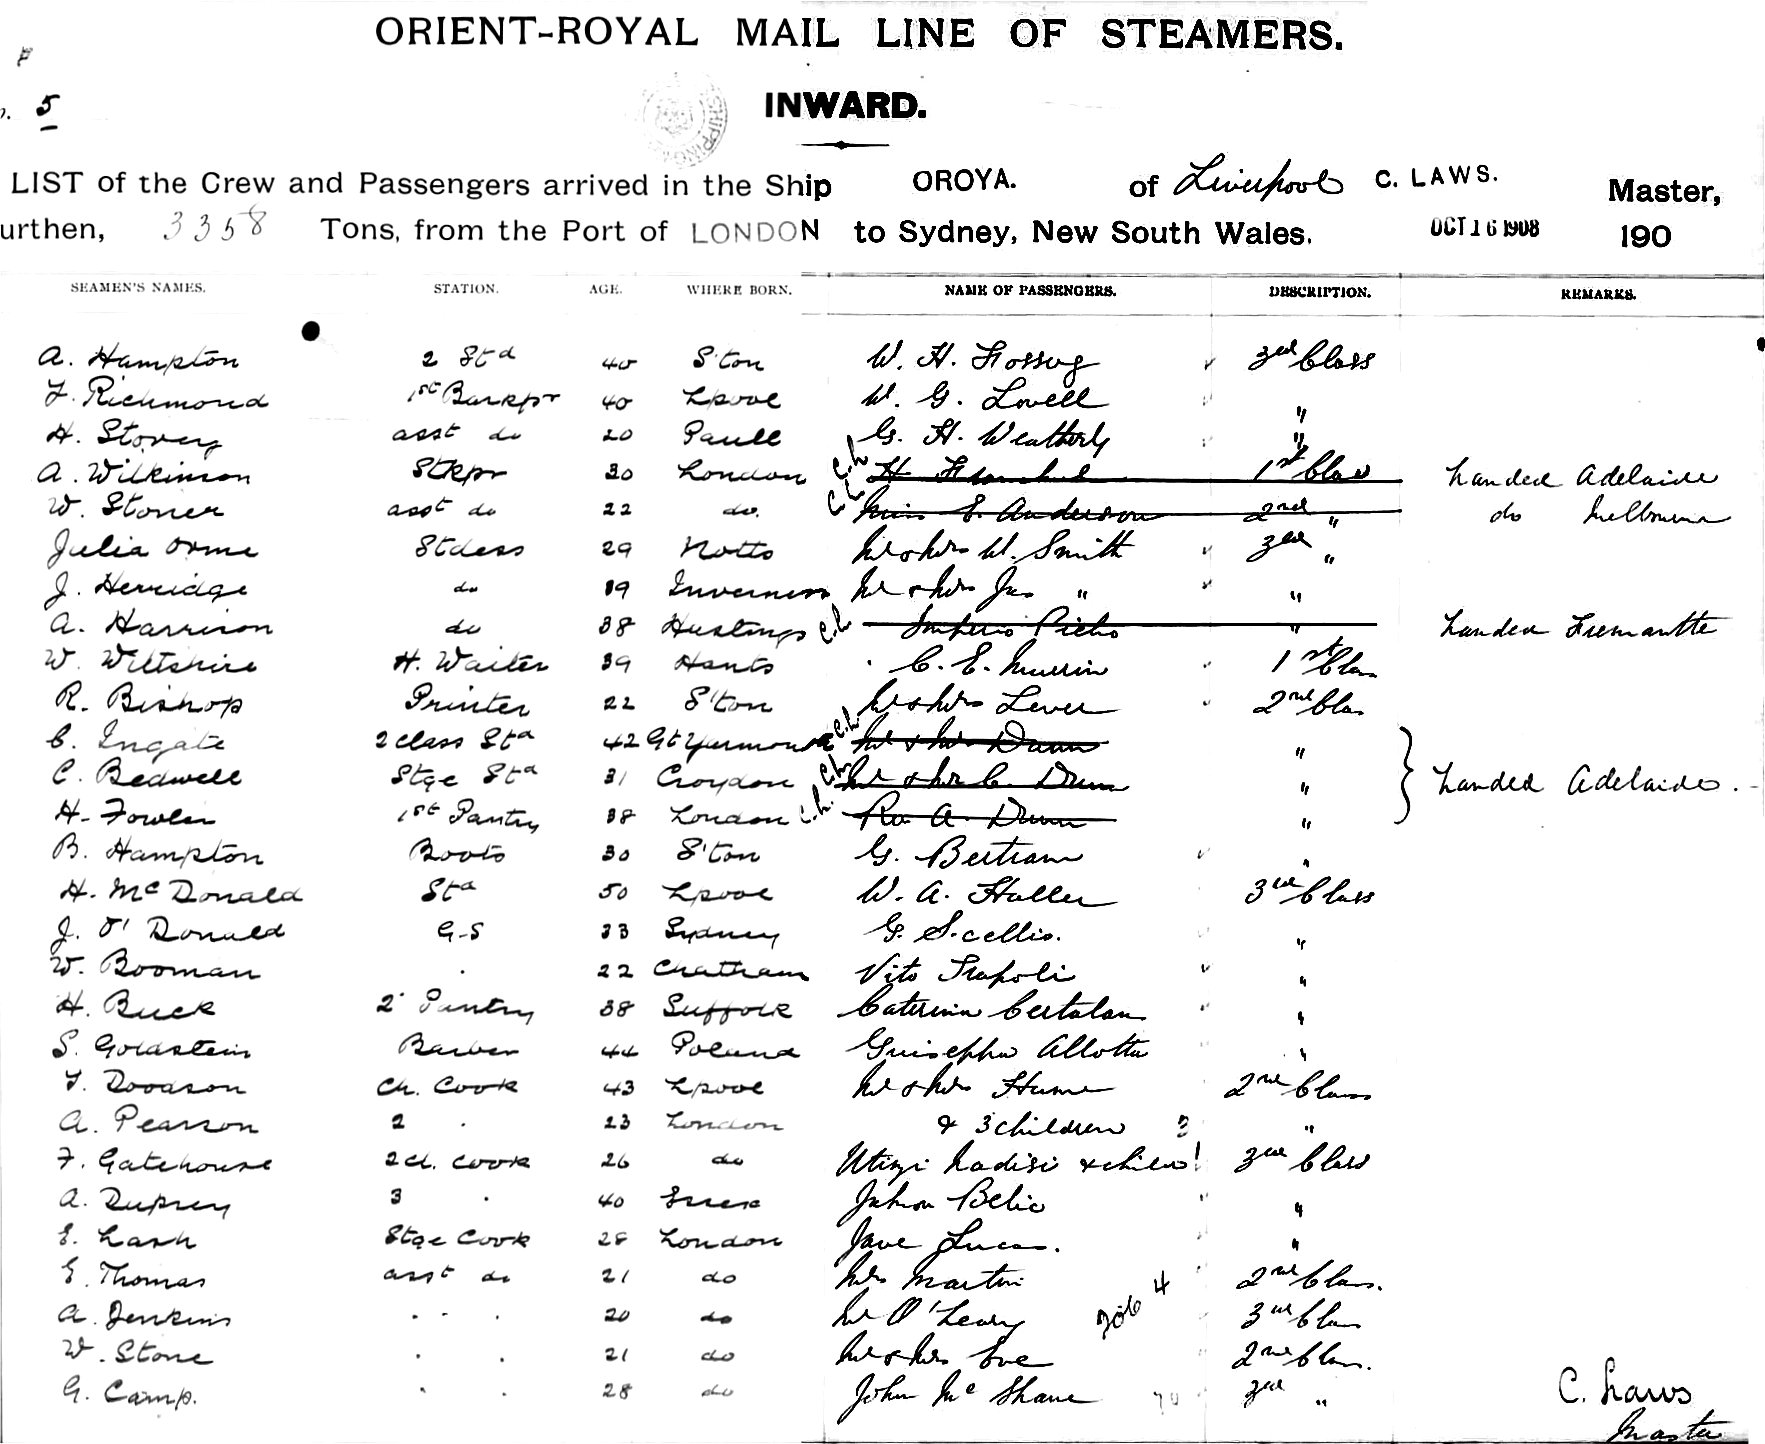 ORIENT-ROYAL MAIL LINE OF STEAMERS.
5
INWARD.
SHIPPING
LIST of the Crew and Passengers arrived in the Ship OROYA. of Liverpool C. LAWS. Master,
urthen, 3358 Tons, from the Port of LONDON to Sydney, New South Wales. OCT 16 1908 190
SEAMEN'S NAMES. STATION. AGE. WHERE BORN. NAME OF PASSENGERS. DESCRIPTION. REMARKS.
A. Hampton 2 Std 40 S'ton W. H. 3rd Class
F. Richmond 1st Barkpr 40 Lpool W. G. Lovell "
H. Storey asst do 20 Paull G. H. Weatherly "
A. Wilkinson Stkpr 30 London C.L. H 1st Class Landed Adelaide
W. Stoner asst do 22 do. C.L. Miss E. Anderson 2nd " do Melbourne
Julia Orme Stdess 29 Notts Mr & Mrs W. Smith 3rd "
J. Herridge do 39 Inverness Mr & Mrs Jas " "
A. Harrison do 38 Hastings C.L. " Landed Fremantle
W. Wiltshire H. Waiter 39 Hants C. E. Murrin 1st Class
R. Bishop Printer 22 S'ton Mr & Mrs Lever 2nd Class
C. Ingate 2 class Std 42 Gt Yarmouth C.L. Mr & Mrs Dunn "
C. Bedwell Stge Std 31 Croydon C.L. Mr & Mrs C. Dunn " Landed Adelaide.
H. Fowler 1st Pantry 38 London C.L. A. Dunn "
B. Hampton Boots 30 S'ton G. Bertram "
H. McDonald Std 50 Lpool W. A. Haller 3rd Class
J. O'Donald G.S 33 Sydney G. "
W. Booman . 22 Chatham Vito Trapoli "
H. Buck 2 Pantry 38 Suffolk Caterina "
S. Goldstein Barber 44 Poland Guiseppha Allotta "
T. Dodson Ch. Cook 43 Lpool Mr & Mrs Hume 2nd Class
A. Pearson 2 . 23 London & 3 children 3 "
F. Gatehouse 2 Cl. Cook 26 do & child 1 3rd Class
A. Duprey 3 . 40 Essex Belic "
E. Lash Stge Cook 28 London Jave Lucas. "
E. Thomas asst do 21 do Mrs Martin 2nd Class.
A. Jenkins . . 20 do Mr O'Leary 3rd Class
W. Stone . . 21 do Mr & Mrs Eve 2nd Class.
G. Camp. . . 28 do John McShane 3rd "
C. Laws
Master